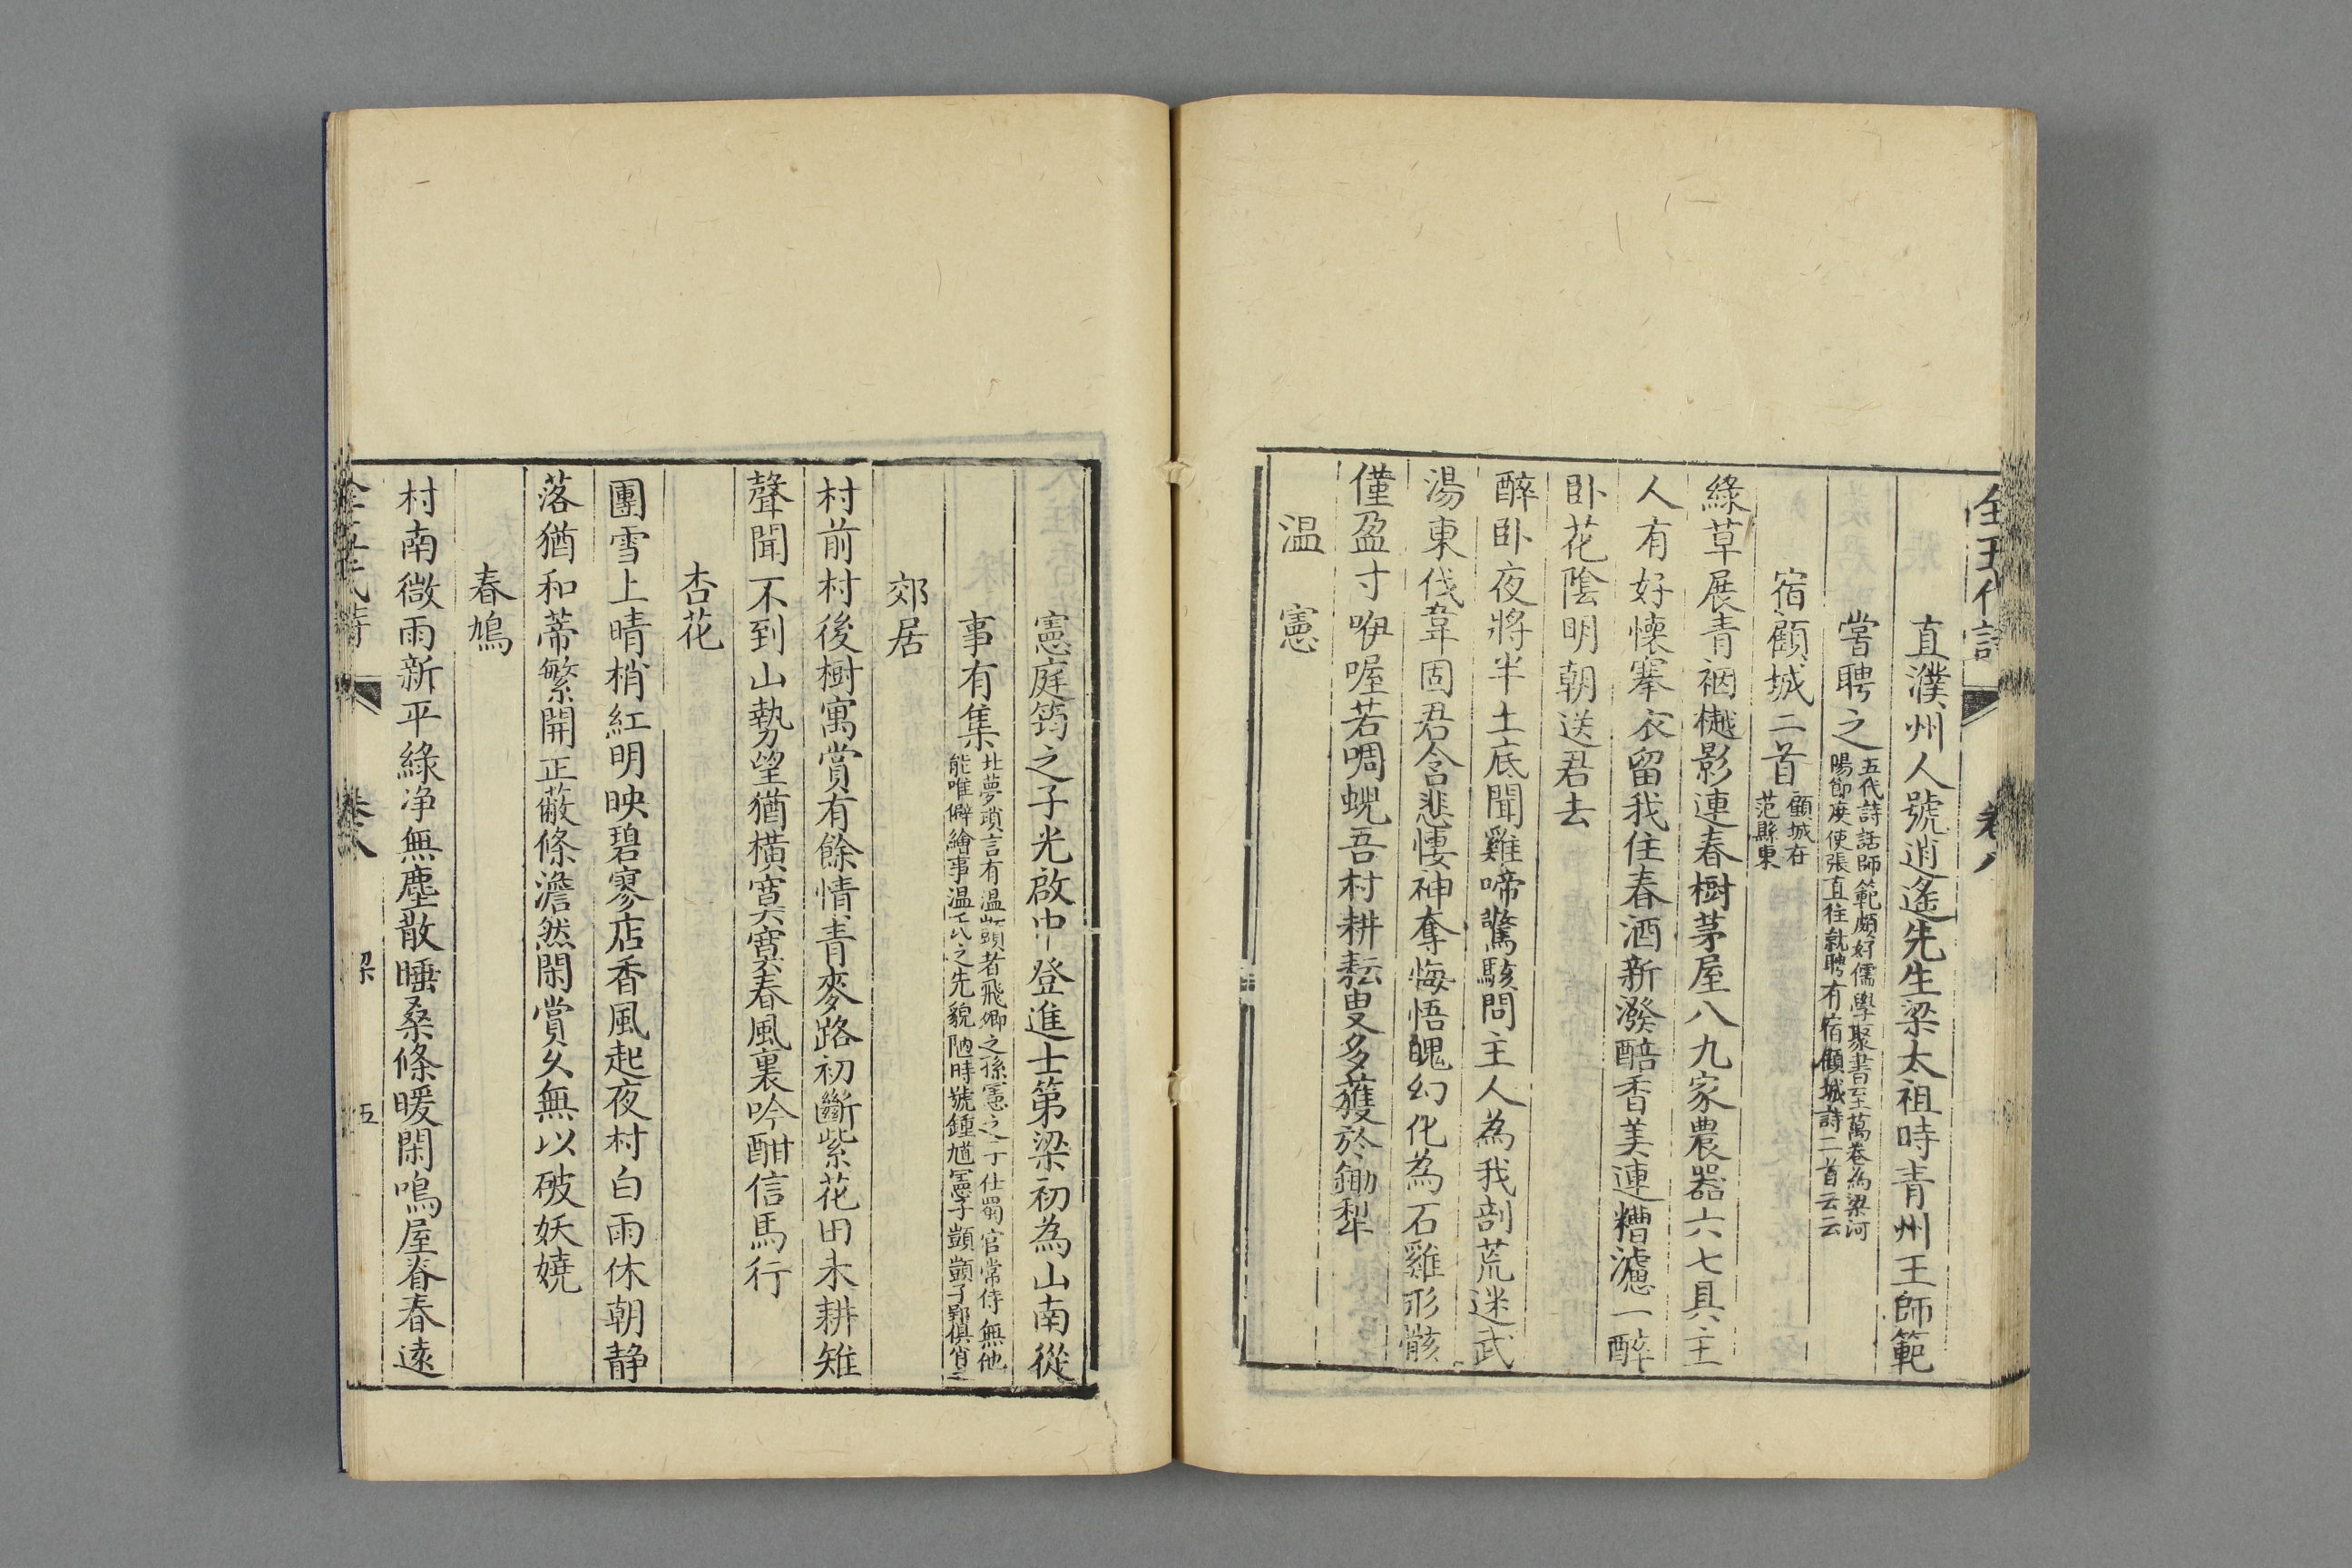 全五代詩 卷八
直濮州人號逍遙先生梁太祖時青州王師範
嘗聘之
五代詩話師範頗好儒學聚書至萬卷為梁河
陽節度使張直往就聘有宿顧城詩二首云云
宿顧城二首
顧城在
范縣東
綠草展青裀樾影連春樹茅屋八九家農器六七具主
人有好懷搴衣留我住春酒新潑醅香美連糟濾一醉
卧花陰明朝送君去
醉卧夜將半土底聞雞啼驚駭問主人為我剖荒迷武
湯東伐韋固君含悲悽神奪悔悟魄幻化為石雞形骸
僅盈寸咿喔若啁蜺吾村耕耘叟多獲於鋤犁
温憲
憲庭筠之子光啟中登進士第梁初為山南從
事有集
北夢瑣言有温顗者飛卿之孫憲之子仕蜀官常侍無他
能唯僻繪事温氏之先貌陋時號鍾馗憲子顗顗子郢俱肖之
郊居
村前村後樹寓賞有餘情青麥路初斷紫花田未耕雉
聲聞不到山勢望猶橫寞寞春風裏吟酣信馬行
杏花
團雪上晴梢紅明映碧寥店香風起夜村白雨休朝静
落猶和蒂繁開正蔽條澹然閑賞久無以破妖嬈
春鳩
村南微雨新平綠净無塵散睡桑條暖閑鳴屋脊春遠
全五代詩 卷八 梁 五